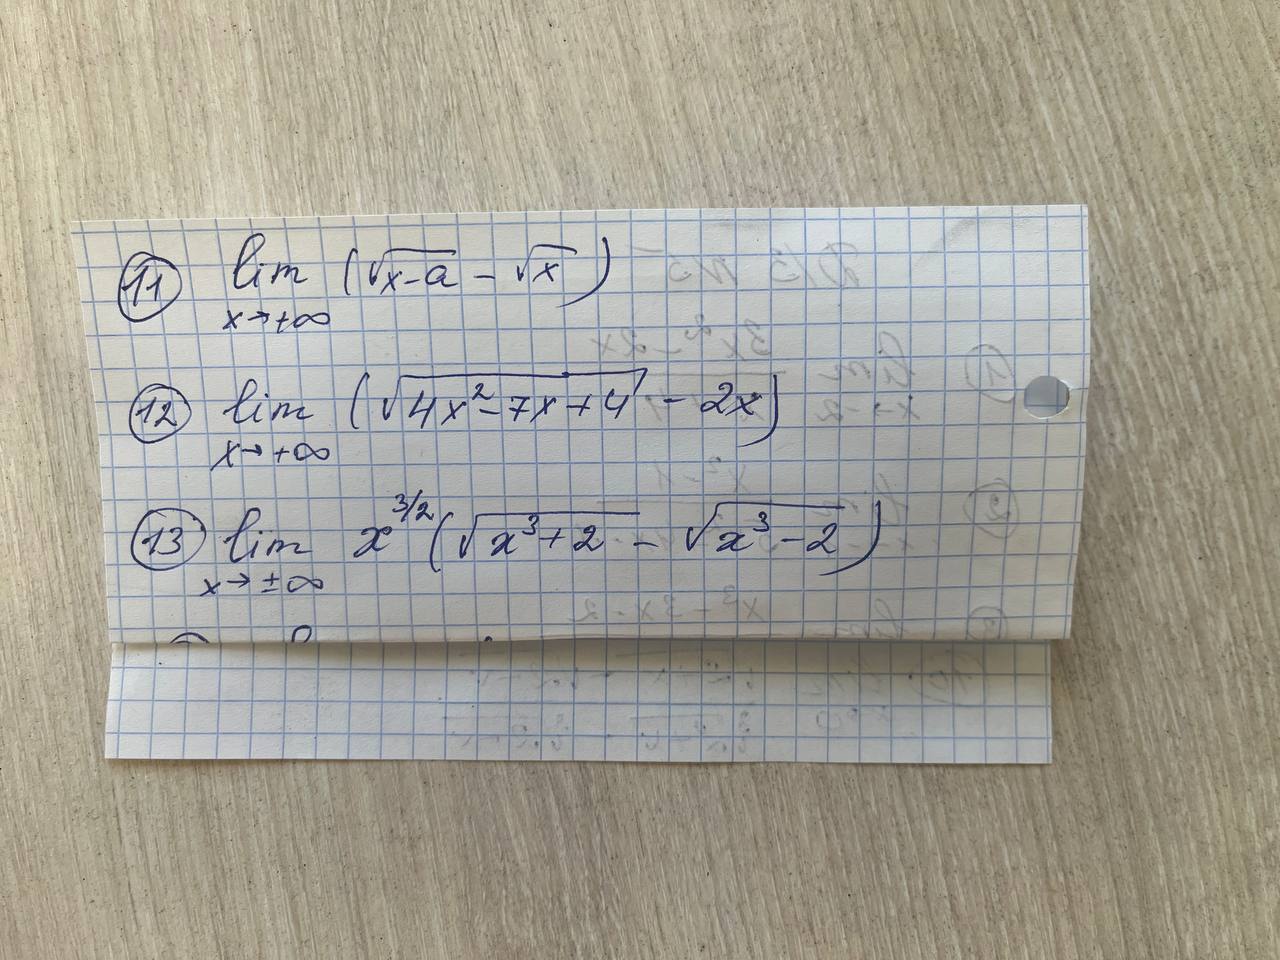 11 lim (√x-a - √x)
x→+∞
12 lim (√4x²-7x+4 - 2x)
x→+∞
13 lim x^3/2 (√x³+2 - √x³-2)
x→±∞